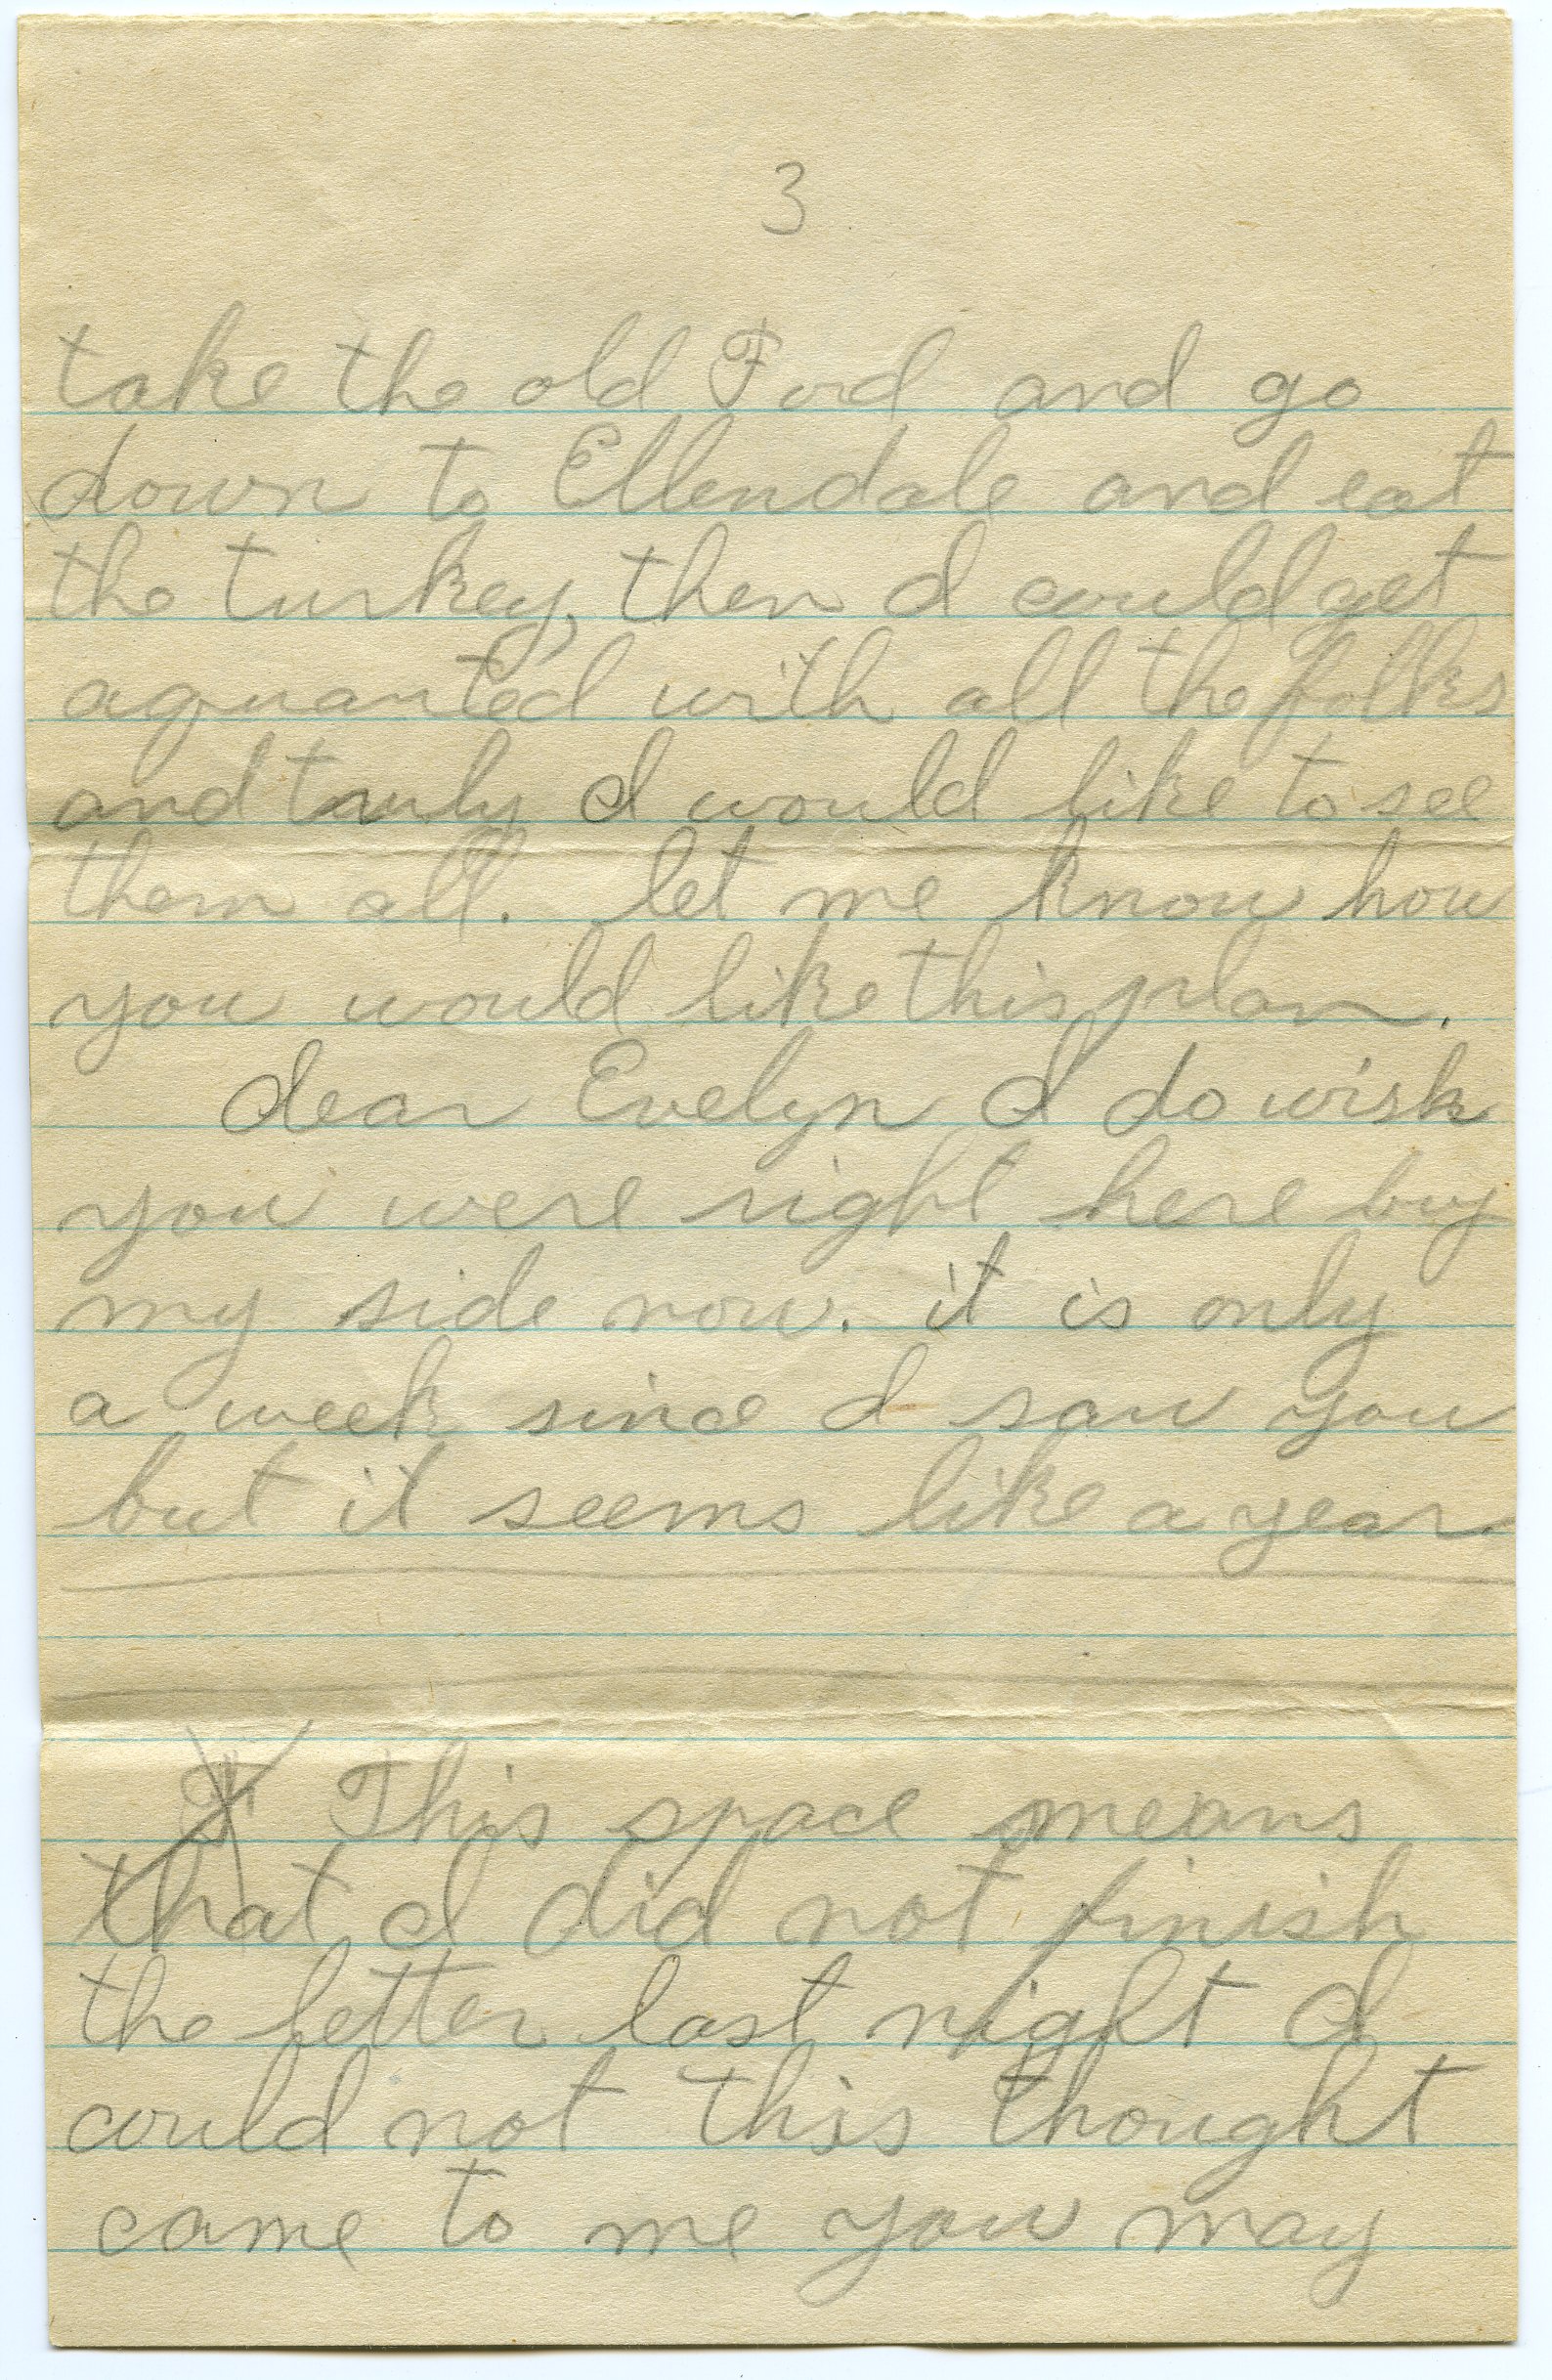 3
take the old Ford and go
down to Ellendale and eat
the turkey, then I could get
aquanted with all the folks
and truly I would like to see
them all. let me know how
you would like this plan.
dear Evelyn I do wish
you were right here buy
my side now. it is only
a week since I saw you
but it seems like a year.
This space means
that I did not finish
the letter last night I
could not this thought
came to me you may